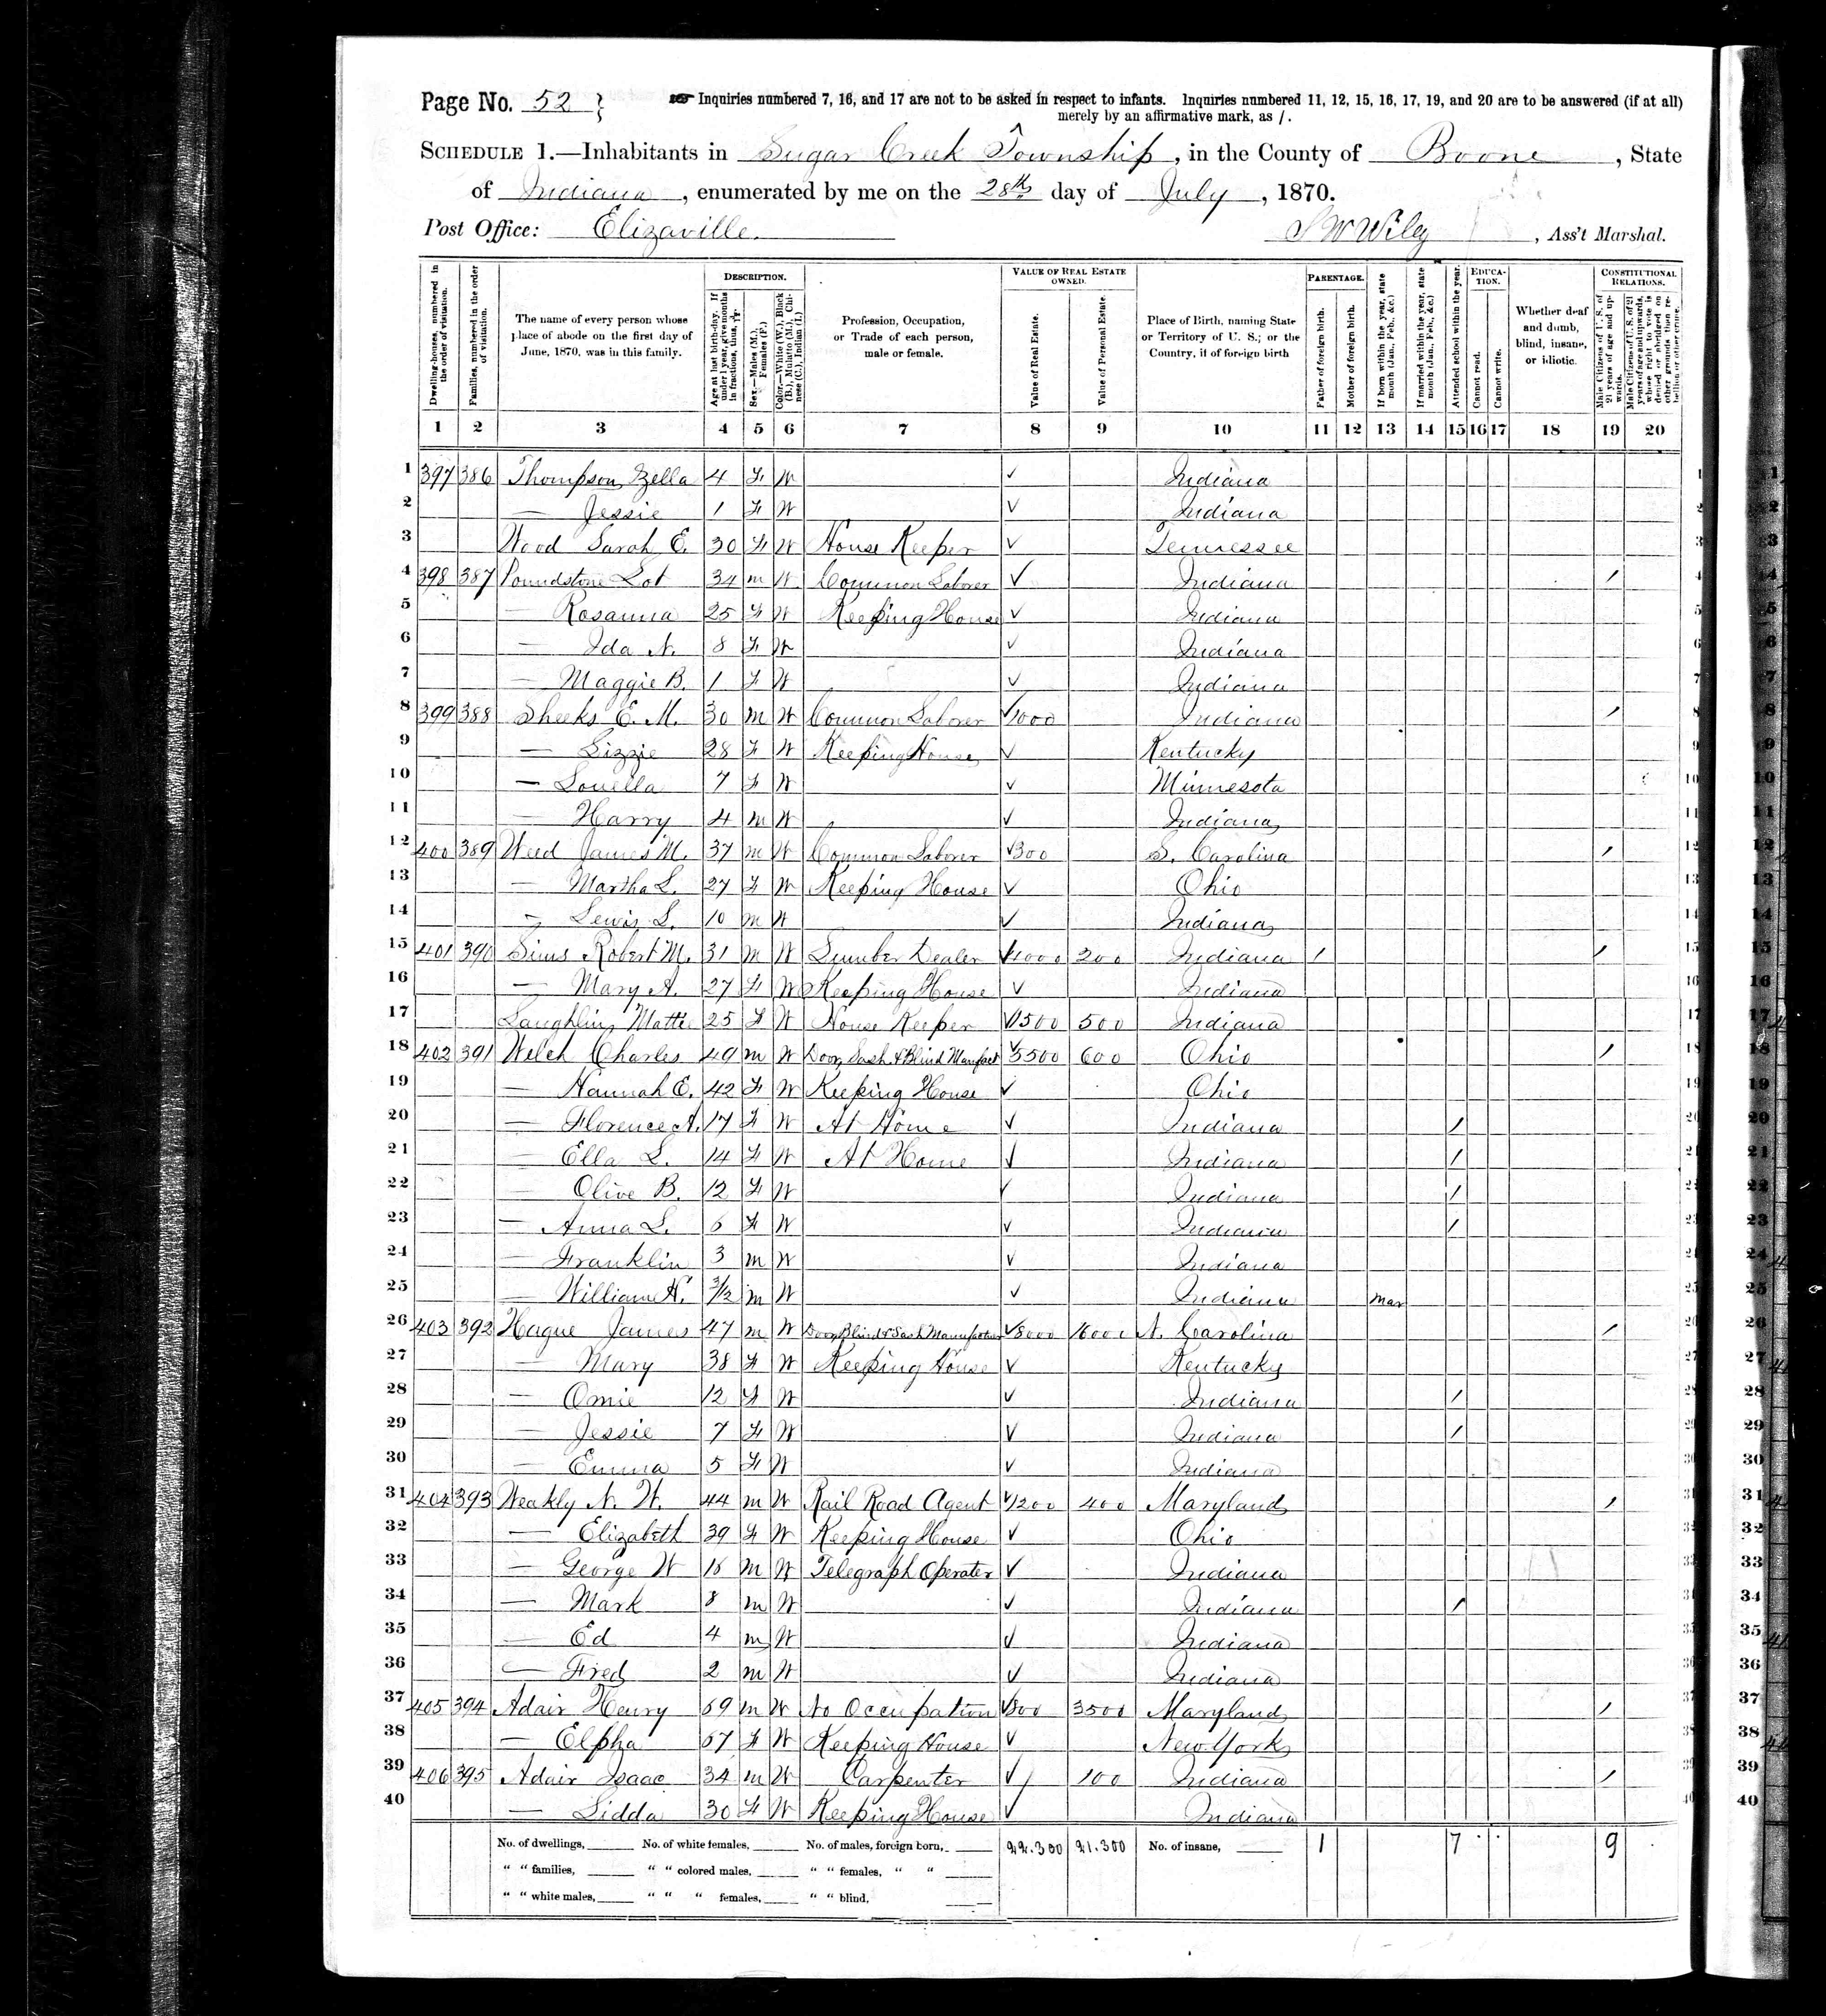 Page No. 52 } Inquiries numbered 7, 16, and 17 are not to be asked in respect to infants. Inquiries numbered 11, 12, 15, 16, 17, 19, and 20 are to be answered (if at all)
merely by an affirmative mark, as /.
SCHEDULE 1.—Inhabitants in Sugar Creek Township, in the County of Boone, State
of Indiana, enumerated by me on the 28th day of July, 1870.
Post Office: Elizaville. S W Wiley, Ass't Marshal.
Dwelling-houses, numbered in the order of visitation.
Families, numbered in the order of visitation.
The name of every person whose place of abode on the first day of June, 1870, was in this family.
DESCRIPTION.
Age at last birth-day. If under 1 year, give months in fractions, thus, 3/12.
Sex.—Males (M.), Females (F.)
Color.—White (W.), Black (B.), Mulatto (M.), Chinese (C.), Indian (I.)
Profession, Occupation, or Trade of each person, male or female.
VALUE OF REAL ESTATE OWNED.
Value of Real Estate.
Value of Personal Estate.
Place of Birth, naming State or Territory of U. S.; or the Country, if of foreign birth
PARENTAGE.
Father of foreign birth.
Mother of foreign birth.
If born within the year, state month (Jan., Feb., &c.)
If married within the year, state month (Jan., Feb., &c.)
Attended school within the year.
EDUCATION.
Cannot read.
Cannot write.
Whether deaf and dumb, blind, insane, or idiotic.
CONSTITUTIONAL RELATIONS.
Male Citizens of U. S. of 21 years of age and upwards.
Male Citizens of U. S. of 21 years of age and upwards, whose right to vote is denied or abridged on other grounds than rebellion or other crime.
1 2 3 4 5 6 7 8 9 10 11 12 13 14 15 16 17 18 19 20
1 397 386 Thompson Zella 4 F W ✓ Indiana 1
2 — Jessie 1 F W ✓ Indiana 2
3 Wood Sarah E. 30 F W House Keeper ✓ Tennessee 3
4 398 387 Poundstone Lot 34 m W Common Laborer ✓ Indiana / 4
5 — Rosanna 25 F W Keeping House ✓ Indiana 5
6 — Ida N. 8 F W ✓ Indiana 6
7 — Maggie B. 1 F W ✓ Indiana 7
8 399 388 Sheeks E. M. 30 m W Common Laborer ✓1000 Indiana / 8
9 — Lizzie 28 F W Keeping House ✓ Kentucky 9
10 — Louella 7 F W ✓ Minnesota 10
11 — Harry 4 m W ✓ Indiana 11
12 400 389 Weed James M. 37 m W Common Laborer ✓300 S. Carolina / 12
13 — Martha L. 27 F W Keeping House ✓ Ohio 13
14 — Lewis L. 10 m W ✓ Indiana 14
15 401 390 Sims Robert M. 31 m W Lumber Dealer ✓4000 200 Indiana / / 15
16 — Mary A. 27 F W Keeping House ✓ Indiana 16
17 Laughlin Mattie 25 F W House Keeper ✓1500 500 Indiana 17
18 402 391 Welch Charles 49 m W Door, Sash & Blind Manufact ✓5500 600 Ohio / 18
19 — Hannah E. 42 F W Keeping House ✓ Ohio 19
20 — Florence A. 17 F W At Home ✓ Indiana / 20
21 — Ella L. 14 F W At Home ✓ Indiana / 21
22 — Olive B. 12 F W ✓ Indiana / 22
23 — Anna L. 6 F W ✓ Indiana / 23
24 — Franklin 3 m W ✓ Indiana 24
25 — William H. 3/12 m W ✓ Indiana Mar 25
26 403 392 Hague James 47 m W Door, Blind & Sash Manufacturer ✓8000 16000 N. Carolina / 26
27 — Mary 38 F W Keeping House ✓ Kentucky 27
28 — Omie 12 F W ✓ Indiana / 28
29 — Jessie 7 F W ✓ Indiana / 29
30 — Emma 5 F W ✓ Indiana 30
31 404 393 Weakly N. W. 44 m W Rail Road Agent ✓1200 400 Maryland / 31
32 — Elizabeth 39 F W Keeping House ✓ Ohio 32
33 — George W 16 m W Telegraph Operater ✓ Indiana 33
34 — Mark 8 m W ✓ Indiana / 34
35 — Ed 4 m W ✓ Indiana 35
36 — Fred 2 m W ✓ Indiana 36
37 405 394 Adair Henry 69 m W No Occupation ✓800 3500 Maryland / 37
38 — Elpha 67 F W Keeping House ✓ New York 38
39 406 395 Adair Isaac 34 m W Carpenter ✓ 100 Indiana / 39
40 — Lidda 30 F W Keeping House ✓ Indiana 40
No. of dwellings, No. of white females, No. of males, foreign born, 22.300 21.300 No. of insane, 1 7 9
" " families, " " colored males, " " females, " "
" " white males, " " " females, " " blind,